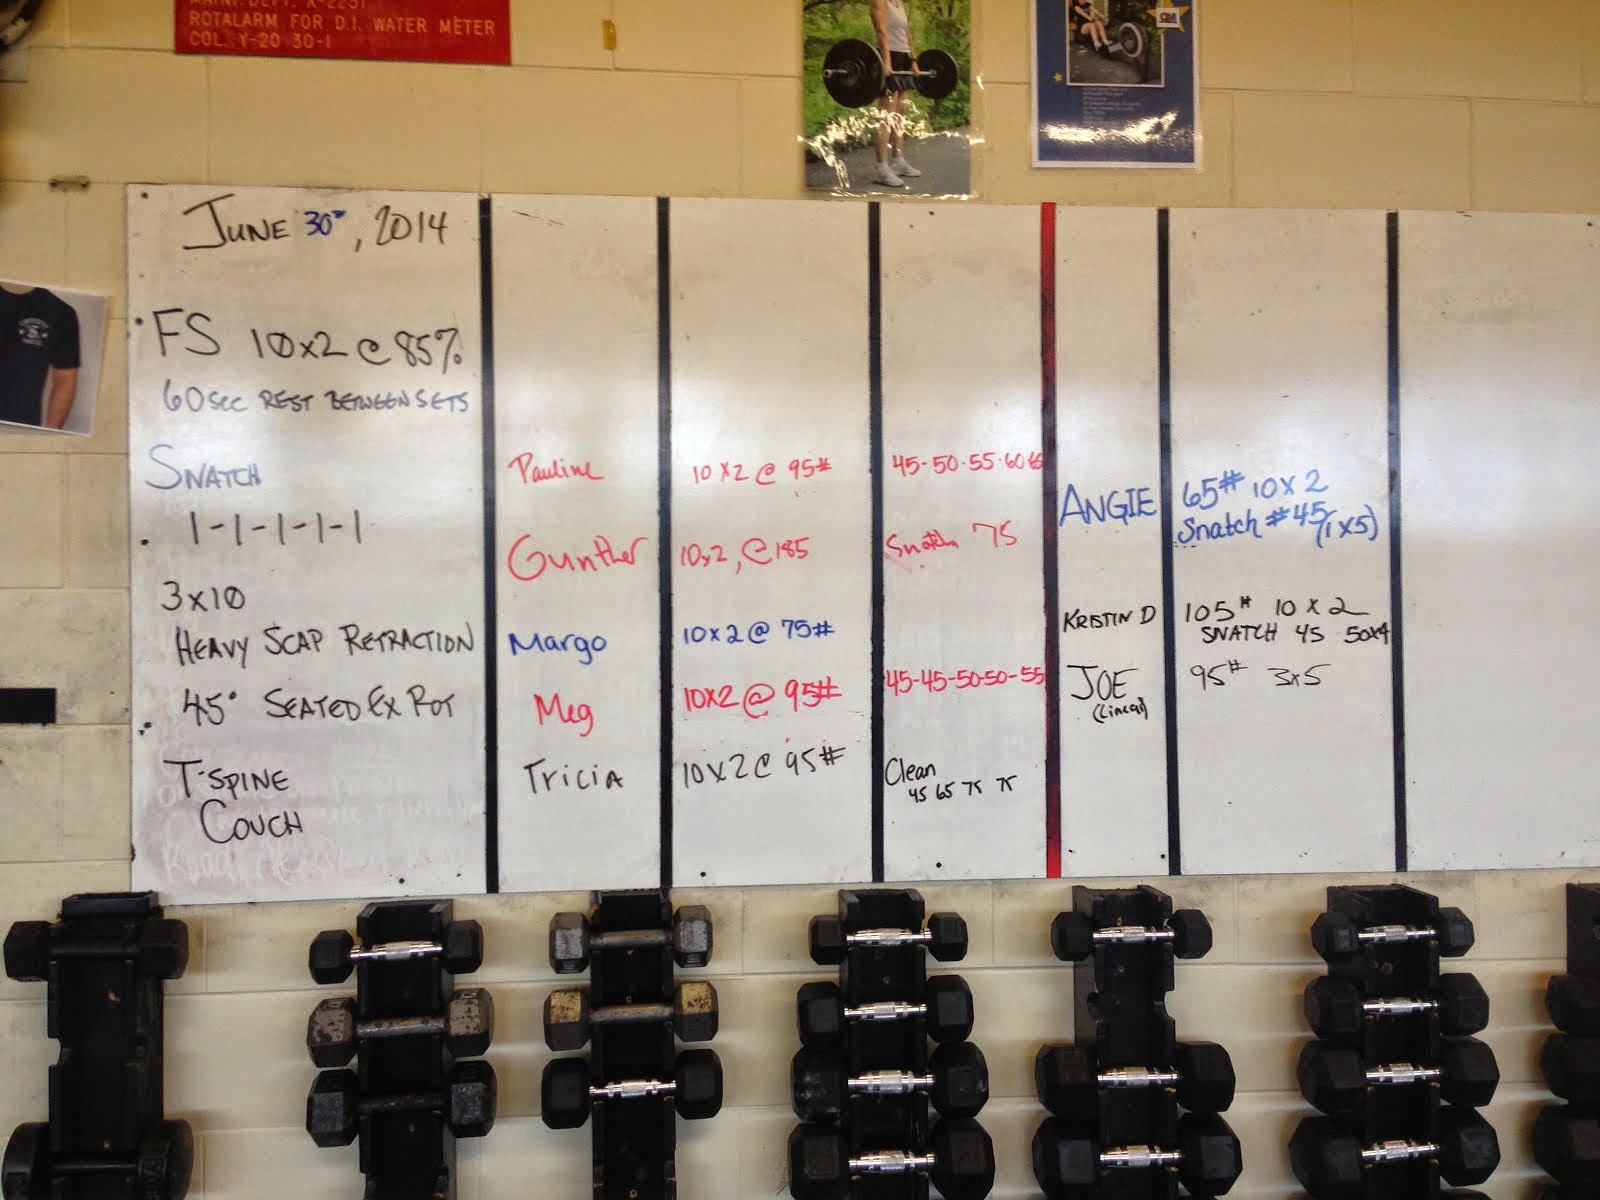 ROTALARM FOR D.I. WATER METER
COL. Y-20 30-1
JUNE 30th, 2014
FS 10x2 @ 85%
60 sec REST BETWEEN SETS
SNATCH
1-1-1-1-1
3x10
HEAVY SCAP RETRACTION
45° SEATED EX ROT
T-SPINE
COUCH
Pauline 10x2 @ 95# 45-50-55-60 65
Gunther 10x2, @185 Snatch 75
Margo 10x2 @ 75#
Meg 10x2 @ 95# 45-45-50-50-55
Tricia 10x2 @ 95# Clean
45 65 75 75
ANGIE 65# 10x2
Snatch #45 (1x5)
KRISTIN D 105# 10x2
SNATCH 45 50x4
JOE 95# 3x5
(Linear)